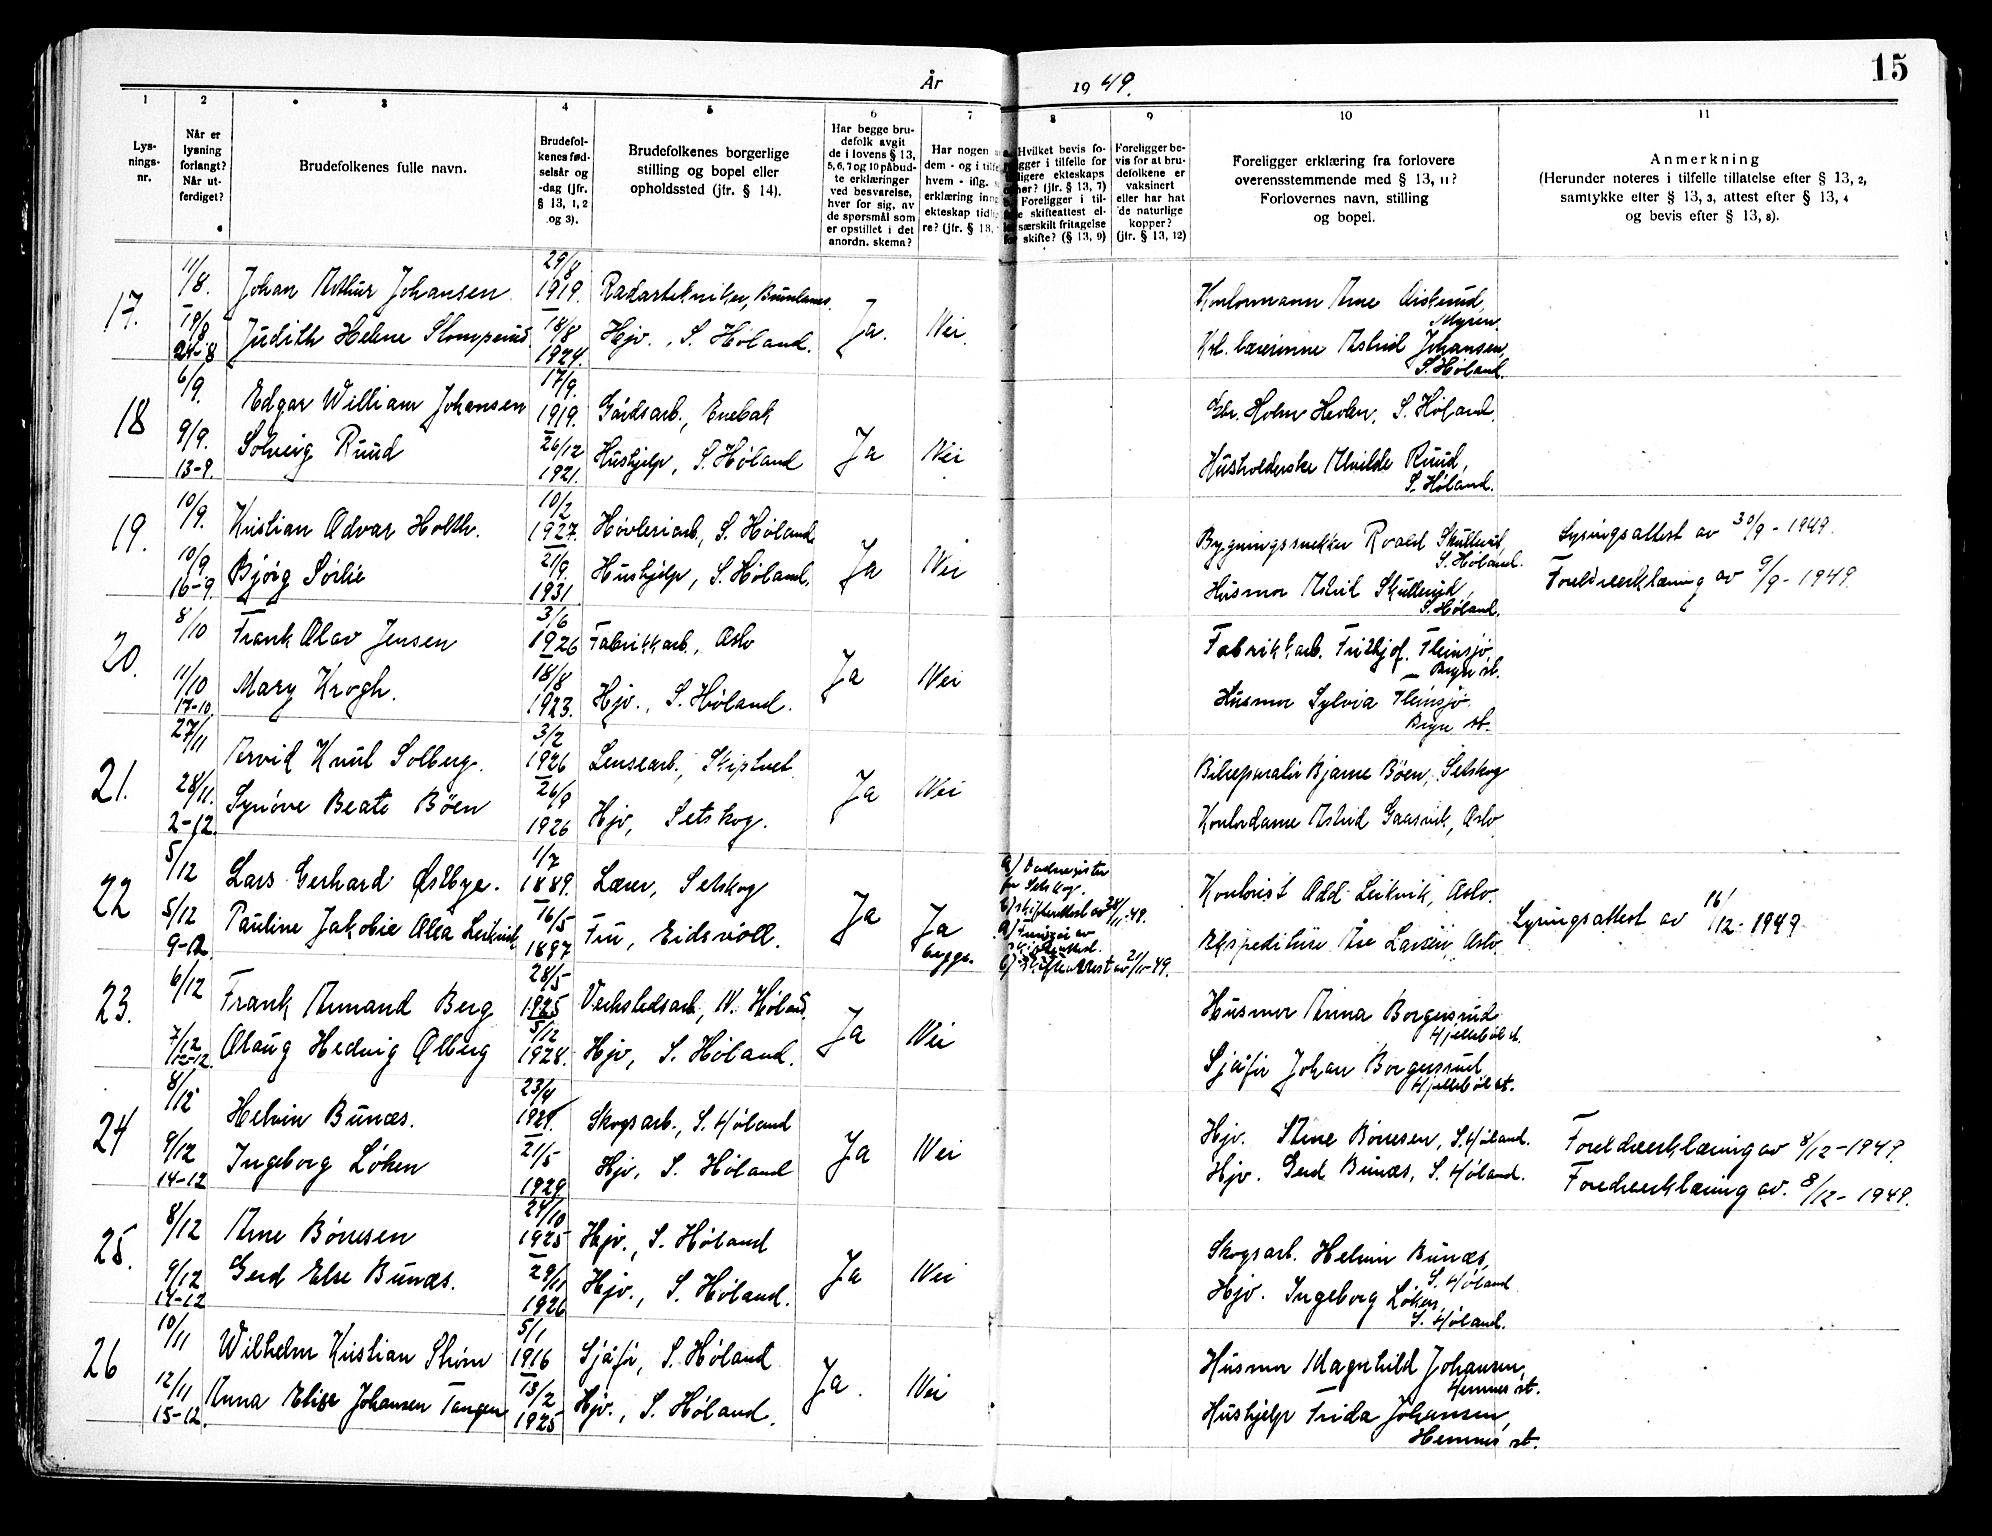 15
År 1949.
1 2 3 4 5 6 7 8 9 10 11
Lys-
nings-
nr.
Når er
lysning
forlangt?
Når ut-
ferdiget?
Brudefolkenes fulle navn.
Brudefol-
kenes fød-
selsår og
-dag (jfr.
§ 13, 1, 2
og 3).
Brudefolkenes borgerlige
stilling og bopel eller
opholdssted (jfr. § 14).
Har begge bru-
defolk avgit
de i lovens § 13,
5, 6, 7 og 10 påbud-
te erklæringer
ved besvarelse,
hver for sig, av
de spørsmål som
er opstillet i det
anordn. skema?
Har nogen
dem - og i
hvem - iflg.
erklæring
ekteskap
re? (jfr. § 13,
Hvilket bevis
i tilfelle for
ekteskaps
(jfr. § 13, 7)
Foreligger i til-
skifteattest el-
særskilt fritagelse
skifte? (§ 13, 9)
Foreligger be-
vis for at bru-
defolkene er
vaksinert
eller har hat
de naturlige
kopper?
(jfr. § 13, 12)
Foreligger erklæring fra forlovere
overensstemmende med § 13, 11?
Forlovernes navn, stilling
og bopel.
Anmerkning
(Herunder noteres i tilfelle tillatelse efter § 13, 2,
samtykke efter § 13, 3, attest efter § 13, 4
og bevis efter § 13, 8).
17. 11/8. Johan Arthur Johansen 29/8 1919. Radartekniker,
19/8 24-8 Judith Helene 18/8 1924. Hjv., S. Høland. Ja. Nei.
Kontormann Arne
Myren.
Astrid Johansen,
S. Høland.
18 6/9. Edgar William Johansen 17/9. 1919. Gårdsarb., Enebak
9/9. 13-9. Solveig Ruud 26/12 1921. Hushjelp, S. Høland Ja Nei
Holm S. Høland.
Husholderske Alvilde Ruud,
S. Høland.
19. 10/9. Kristian Odvar Holth. 10/2 1927. Høvleriarb., S. Høland.
10/9 16-9. Bjørg Sørlie 21/9. 1931 Hushjelp, S. Høland. Ja Nei
Bygningssnekker Roald Skullerud,
S. Høland.
Husmor Astrid Skullerud,
S. Høland.
Lysingsattest av 30/9 - 1949.
Foreldreerklæring av 9/9 - 1949.
20. 8/10 Frank Olav Jensen 3/6 1926 Fabrikkarb., Oslo
11/10 17-10. Mary Krogh. 18/8 1923. Hjv., S. Høland. Ja Nei
Fabrikkarb. Fridtjof. Fleinsjø,
st.
Husmor Sylvia Fleinsjø
st.
21. 27/11 Arvid Knut Solberg. 3/2 1926 Lensearb., Skiptvet
28/11. 2-12. Synøve Beate Bøen 26/9 1926 Hjv, Setskog. Ja Nei
Bilreparatør Bjarne Bøen, Setskog
Kontordame Astrid Gaasvik, Oslo
22 5/12 Lars Gerhard Østbye. 1/7 1889. Lærer, Setskog
5/12 9-12 Pauline Jakobie Olea Leikvik 16/5 1897 Fru, Eidsvoll. Ja Ja begge.
a)
for Setskog.
b) skifteattest av 28/11-49.
a)
b) skifteattest av 21/11-49.
Kontorist Odd Leikvik, Oslo.
Ekspeditrise Åse Larsen, Oslo
Lysingsattest av 16/12 - 1949
23. 6/12 Frank Armand Berg 28/5 1925 Verkstedsarb., N. Høland.
7/12 12-12. Olaug Hedvig Ølberg 5/12 1928. Hjv, S. Høland. Ja Nei
Husmor Anna Borgersrud
Hjellebøl st.
Sjåfør Johan Borgersrud,
Hjellebøl st.
24 8/12 Helvin Bunæs. 23/4 Skogsarb., S. Høland
9/12 14-12 Ingeborg Løken 21/5 1929 Hjv, S. Høland Ja Nei
Hjv. Stine Bønesen, S. Høland.
Hjv. Gerd Bunæs, S. Høland.
Foreldreerklæring av 8/12-1949.
Foreldreerklæring av. 8/12 - 1949.
25. 8/12 Arne Bønesen 24/10 1925 Hjv., S. Høland
9/12 14-12 Gerd Else Bunæs. 29/11 1926 Hjv., S. Høland. Ja Nei
Skogsarb. Helvin Bunæs,
S. Høland
Hjv. Ingeborg Løken,
S. Høland.
26 10/11 Wilhelm Kristian Strøm 5/1 1916 Sjåfør, S. Høland
12/11 15-12. Anna Elise Johansen Tangen 13/2 1925 Hjv., S. Høland. Ja. Nei
Husmor Magnhild Johansen,
Hemnes st.
Hushjelp Frida Johansen,
Hemnes st.